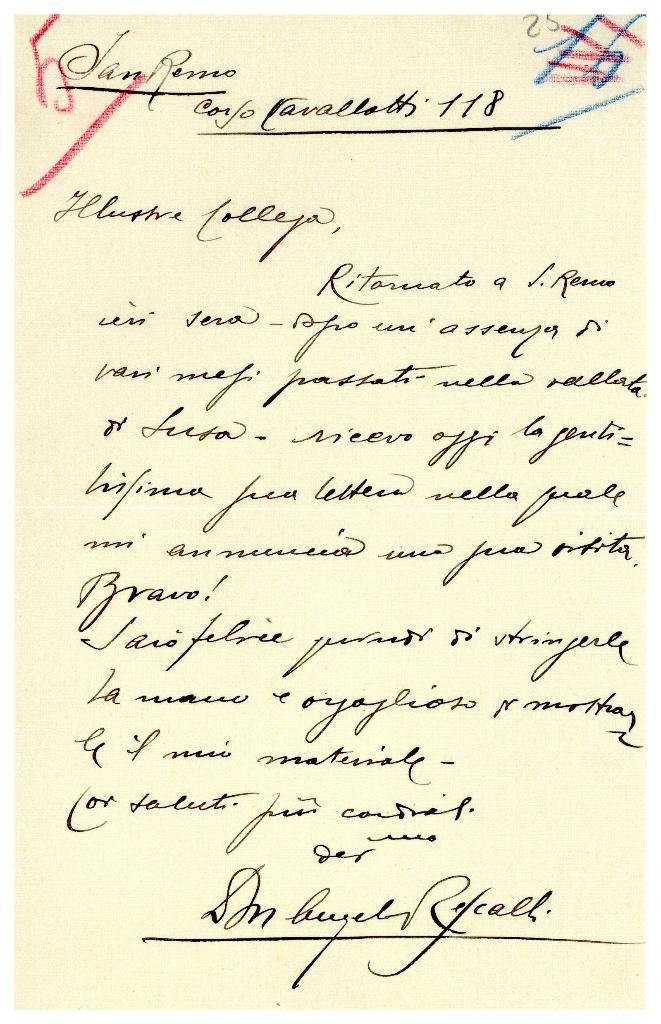 25
San Remo
Corso Cavallotti 118
Illustre Collega,
Ritornato a S. Remo
ieri sera - dopo un' assenza di
vari mesi passati nella vallata
di Susa - ricevo oggi la genti=
lissima sua lettera nella quale
mi annuncia una sua visita.
Bravo!
Sarò felice quindi di stringerle
la mano e orgoglioso di mostrar
le il mio materiale -
Coi saluti più cordiali.
dev mo
Don Angelo Rescalli